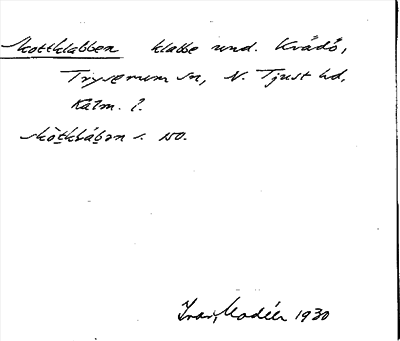 Skottklabben klabbe und. Kvädö,
Tryserum sn, N. Tjust hd,
Kalm. l.
s. NO.
Ivar Modéer 1930